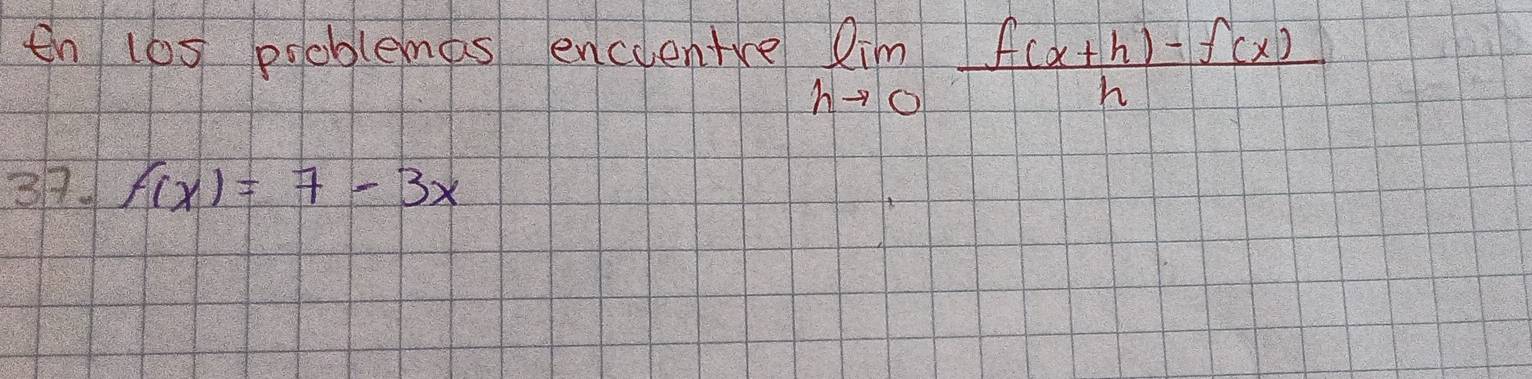 En los problemas encuentre lim f(x+h)-f(x)
h→0 h
37. f(x) = 7 - 3x